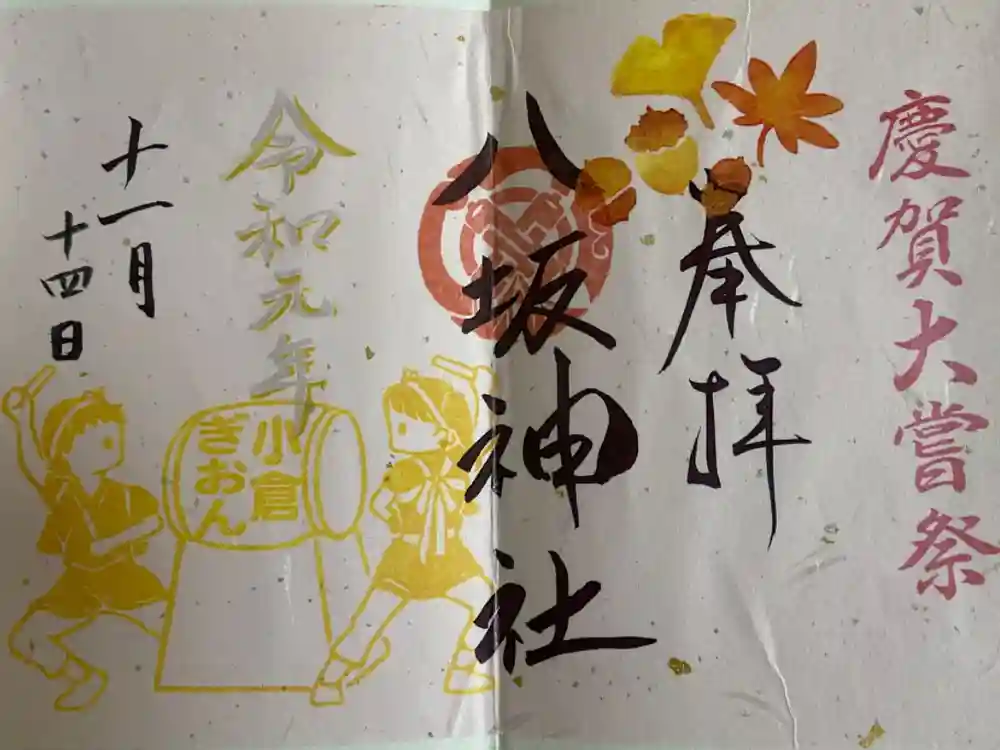 慶賀大嘗祭
奉拝
八坂神社
令和元年
十一月
十四日
小倉
ぎおん